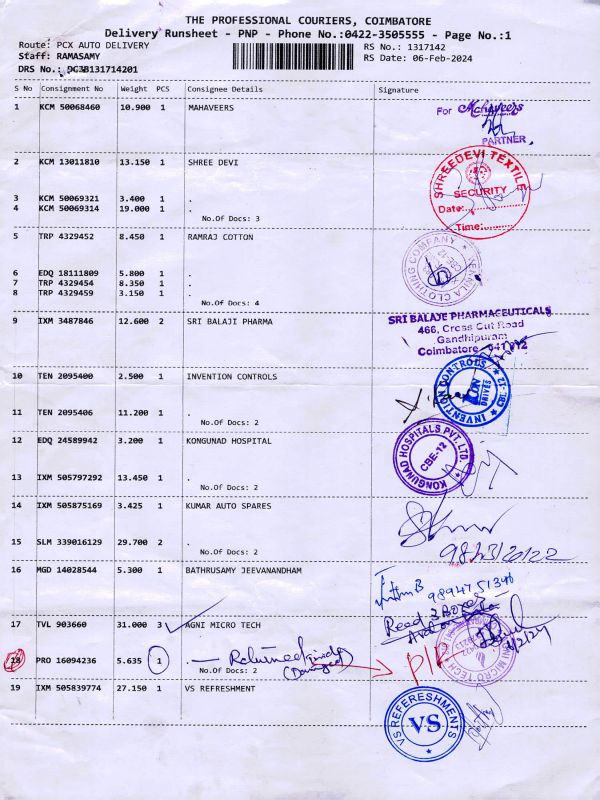 THE PROFESSIONAL COURIERS, COIMBATORE
Delivery Runsheet - PNP - Phone No.:0422-3505555 - Page No.:1
Route: PCX AUTO DELIVERY RS No.: 1317142
Staff: RAMASAMY RS Date: 06-Feb-2024
DRS No.:
S No Consignment No Weight PCS Consignee Details Signature
1 KCM 50068460 10.900 1 MAHAVEERS
For Mahaveers
PARTNER
2 KCM 13011810 13.150 1 SHREE DEVI
SHREEDEVI TEXTILE
SECURITY
3 KCM 50069321 3.400 1 .
Date:
4 KCM 50069314 19.000 1 .
No.Of Docs: 3
Time:
5 TRP 4329452 8.450 1 RAMRAJ COTTON
CLOTHING COMPANY
CBE-12
6 EDQ 18111809 5.800 1 .
7 TRP 4329454 8.350 1 .
8 TRP 4329459 3.150 1 .
No.Of Docs: 4
9 IXM 3487846 12.600 2 SRI BALAJI PHARMA
SRI BALAJE PHARMACEUTICALS
466, Cross Cut Road
Gandhipuram
Coimbatore
10 TEN 2095400 2.500 1 INVENTION CONTROLS
INVENTION CONTROLS
ION
DRIVES
11 TEN 2095406 11.200 1 .
No.Of Docs: 2
12 EDQ 24589942 3.200 1 KONGUNAD HOSPITAL
KONGUNAD HOSPITALS PVT. LTD.
CBE-12
13 IXM 505797292 13.450 1 .
No.Of Docs: 2
14 IXM 505875169 3.425 1 KUMAR AUTO SPARES
15 SLM 339016129 29.700 2 .
No.Of Docs: 2
16 MGD 14028544 5.300 1 BATHRUSAMY JEEVANANDHAM
17 TVL 903660 31.000 3 AGNI MICRO TECH
MICRO TECH
18 PRO 16094236 5.635 1 . Returned
(Damaged)
No.Of Docs: 2
19 IXM 505839774 27.150 1 VS REFRESHMENT
VS REFERESHMENTS
VS